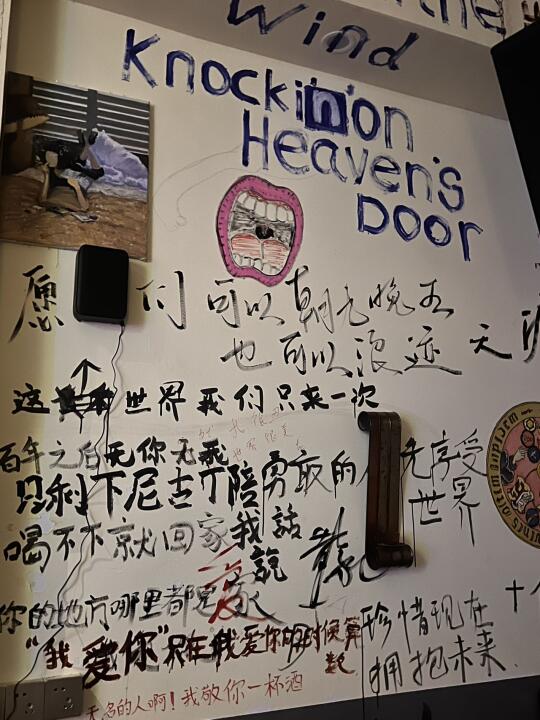 the
Wind
Knockin'on
Heaven's
Door
愿 们可以朝九晚五
也可以浪迹天涯
这 世界我们只来一次
百年之后无你无我
只剩下尼古丁陪
勇敢的人先享受
世界
喝不下就回家我
話
說
你的地方哪里都是家
"我爱你"只在我爱你的时候算
起
珍惜现在
拥抱未来.
的人啊！我敬你一杯酒